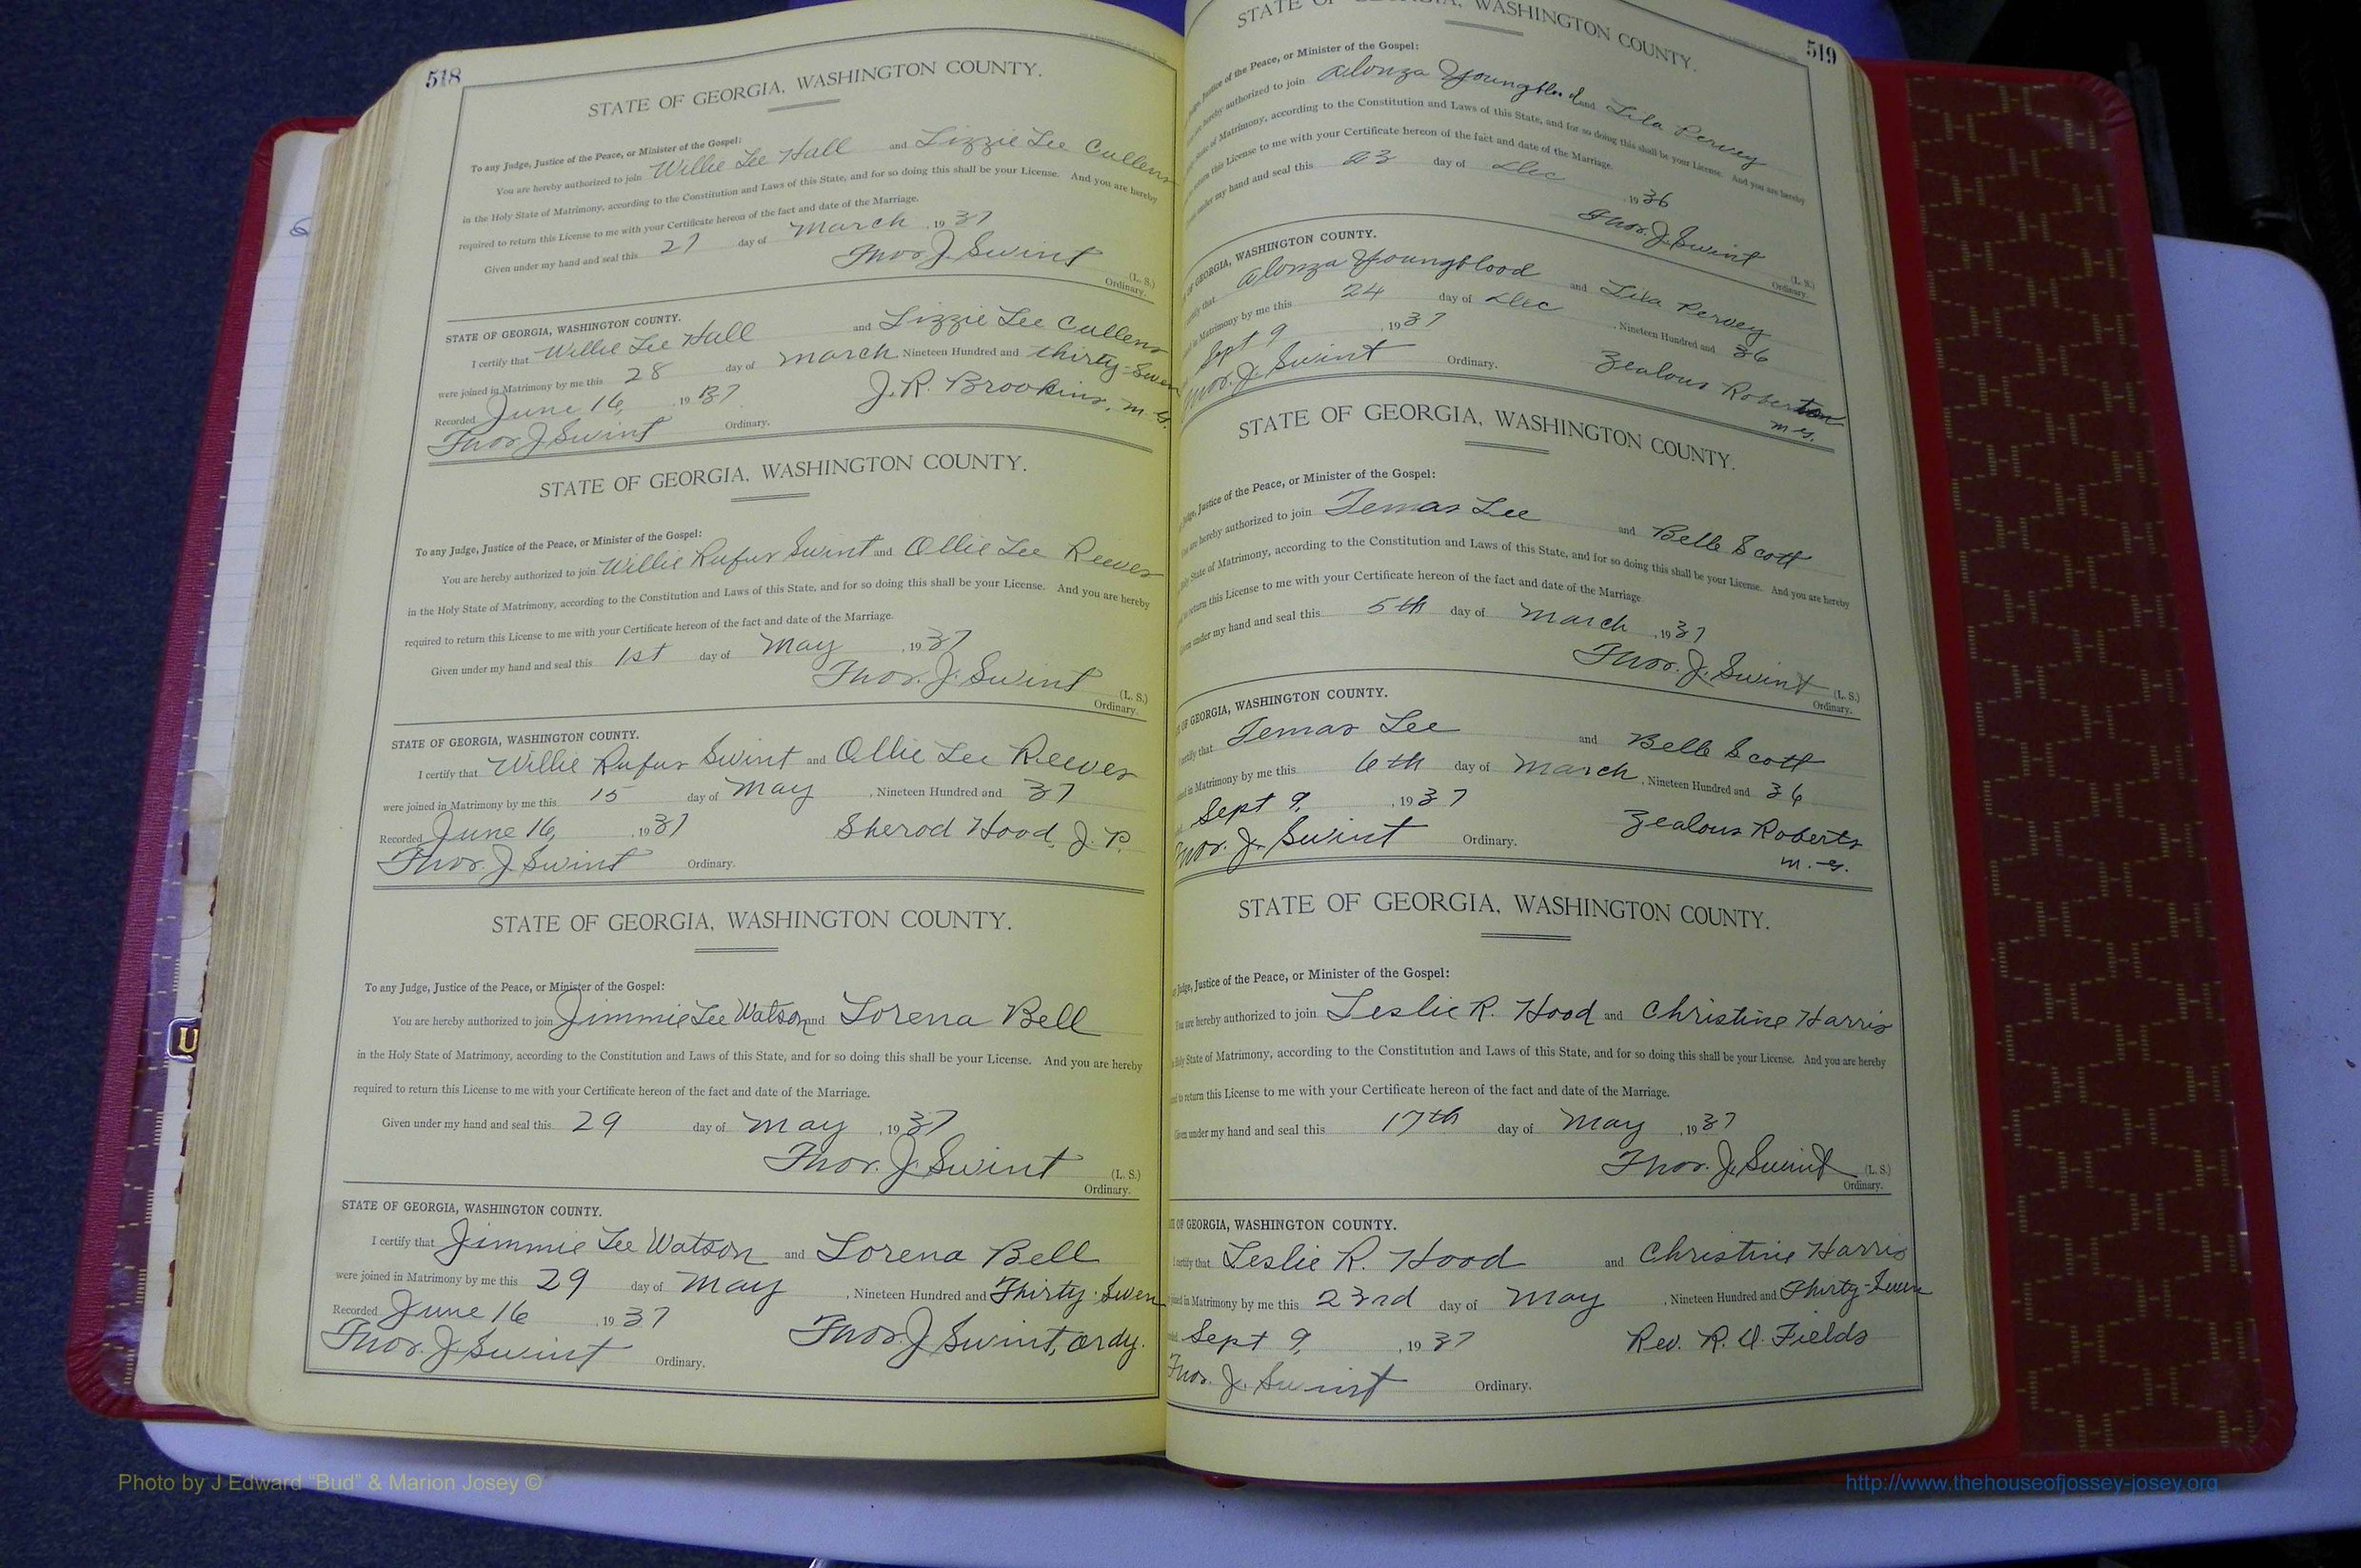 518
STATE OF GEORGIA, WASHINGTON COUNTY.
To any Judge, Justice of the Peace, or Minister of the Gospel:
You are hereby authorized to join Willie Lee Hall and Lizzie Lee Cullens
in the Holy State of Matrimony, according to the Constitution and Laws of this State, and for so doing this shall be your License. And you are hereby
required to return this License to me with your Certificate hereon of the fact and date of the Marriage.
Given under my hand and seal this 27 day of March , 1937
Thos. J. Swint (L. S.)
Ordinary.
STATE OF GEORGIA, WASHINGTON COUNTY.
I certify that Willie Lee Hall and Lizzie Lee Cullens
were joined in Matrimony by me this 28 day of March Nineteen Hundred and thirty-Seven
Recorded June 16, 1937 J. R. Brookins, M. G.
Thos J. Swint Ordinary.
STATE OF GEORGIA, WASHINGTON COUNTY.
To any Judge, Justice of the Peace, or Minister of the Gospel:
You are hereby authorized to join Willie Rufus Swint and Ollie Lee Reeves
in the Holy State of Matrimony, according to the Constitution and Laws of this State, and for so doing this shall be your License. And you are hereby
required to return this License to me with your Certificate hereon of the fact and date of the Marriage.
Given under my hand and seal this 1st day of May , 1937
Thos. J. Swint (L. S.)
Ordinary.
STATE OF GEORGIA, WASHINGTON COUNTY.
I certify that Willie Rufus Swint and Ollie Lee Reeves
were joined in Matrimony by me this 15 day of May , Nineteen Hundred and 37
Recorded June 16, , 1937 Sherod Hood, J. P.
Thos. J. Swint Ordinary.
STATE OF GEORGIA, WASHINGTON COUNTY.
To any Judge, Justice of the Peace, or Minister of the Gospel:
You are hereby authorized to join Jimmie Lee Watson and Lorena Bell
in the Holy State of Matrimony, according to the Constitution and Laws of this State, and for so doing this shall be your License. And you are hereby
required to return this License to me with your Certificate hereon of the fact and date of the Marriage.
Given under my hand and seal this 29 day of May , 1937
Thos. J. Swint (L. S.)
Ordinary.
STATE OF GEORGIA, WASHINGTON COUNTY.
I certify that Jimmie Lee Watson and Lorena Bell
were joined in Matrimony by me this 29 day of May , Nineteen Hundred and Thirty-Seven
Recorded June 16 , 1937 Thos J. Swint, Ordy.
Thos. J. Swint Ordinary.
519
STATE OF GEORGIA, WASHINGTON COUNTY.
Judge, Justice of the Peace, or Minister of the Gospel:
are hereby authorized to join Alonza Youngblood and Lila Pervey
State of Matrimony, according to the Constitution and Laws of this State, and for so doing this shall be your License. And you are hereby
return this License to me with your Certificate hereon of the fact and date of the Marriage.
under my hand and seal this 23 day of Dec , 1936
Thos. J. Swint (L. S.)
Ordinary.
OF GEORGIA, WASHINGTON COUNTY.
certify that Alonza Youngblood and Lila Pervey
in Matrimony by me this 24 day of Dec , Nineteen Hundred and 36
Sept 9 , 1937 Zealous Roberton
Thos. J. Swint Ordinary. M. G.
STATE OF GEORGIA, WASHINGTON COUNTY.
Judge, Justice of the Peace, or Minister of the Gospel:
You are hereby authorized to join Temas Lee and Belle Scott
Holy State of Matrimony, according to the Constitution and Laws of this State, and for so doing this shall be your License. And you are hereby
to return this License to me with your Certificate hereon of the fact and date of the Marriage
Given under my hand and seal this 5th day of March , 1937
Thos. J. Swint (L. S.)
Ordinary.
OF GEORGIA, WASHINGTON COUNTY.
certify that Temas Lee and Belle Scott
in Matrimony by me this 6th day of March , Nineteen Hundred and 36
Sept 9, , 1937 Zealous Roberts
Thos. J. Swint Ordinary. M. G.
STATE OF GEORGIA, WASHINGTON COUNTY.
Judge, Justice of the Peace, or Minister of the Gospel:
You are hereby authorized to join Leslie R. Hood and Christine Harris
Holy State of Matrimony, according to the Constitution and Laws of this State, and for so doing this shall be your License. And you are hereby
to return this License to me with your Certificate hereon of the fact and date of the Marriage.
Given under my hand and seal this 17th day of May , 1937
Thos. J. Swint (L. S.)
Ordinary.
OF GEORGIA, WASHINGTON COUNTY.
certify that Leslie R. Hood and Christine Harris
joined in Matrimony by me this 23rd day of May , Nineteen Hundred and Thirty-Seven
Sept 9, , 1937 Rev. R. U. Fields
Thos. J. Swint Ordinary.
Photo by J Edward “Bud” & Marion Josey ©
http://www.thehouseofjossey-josey.org